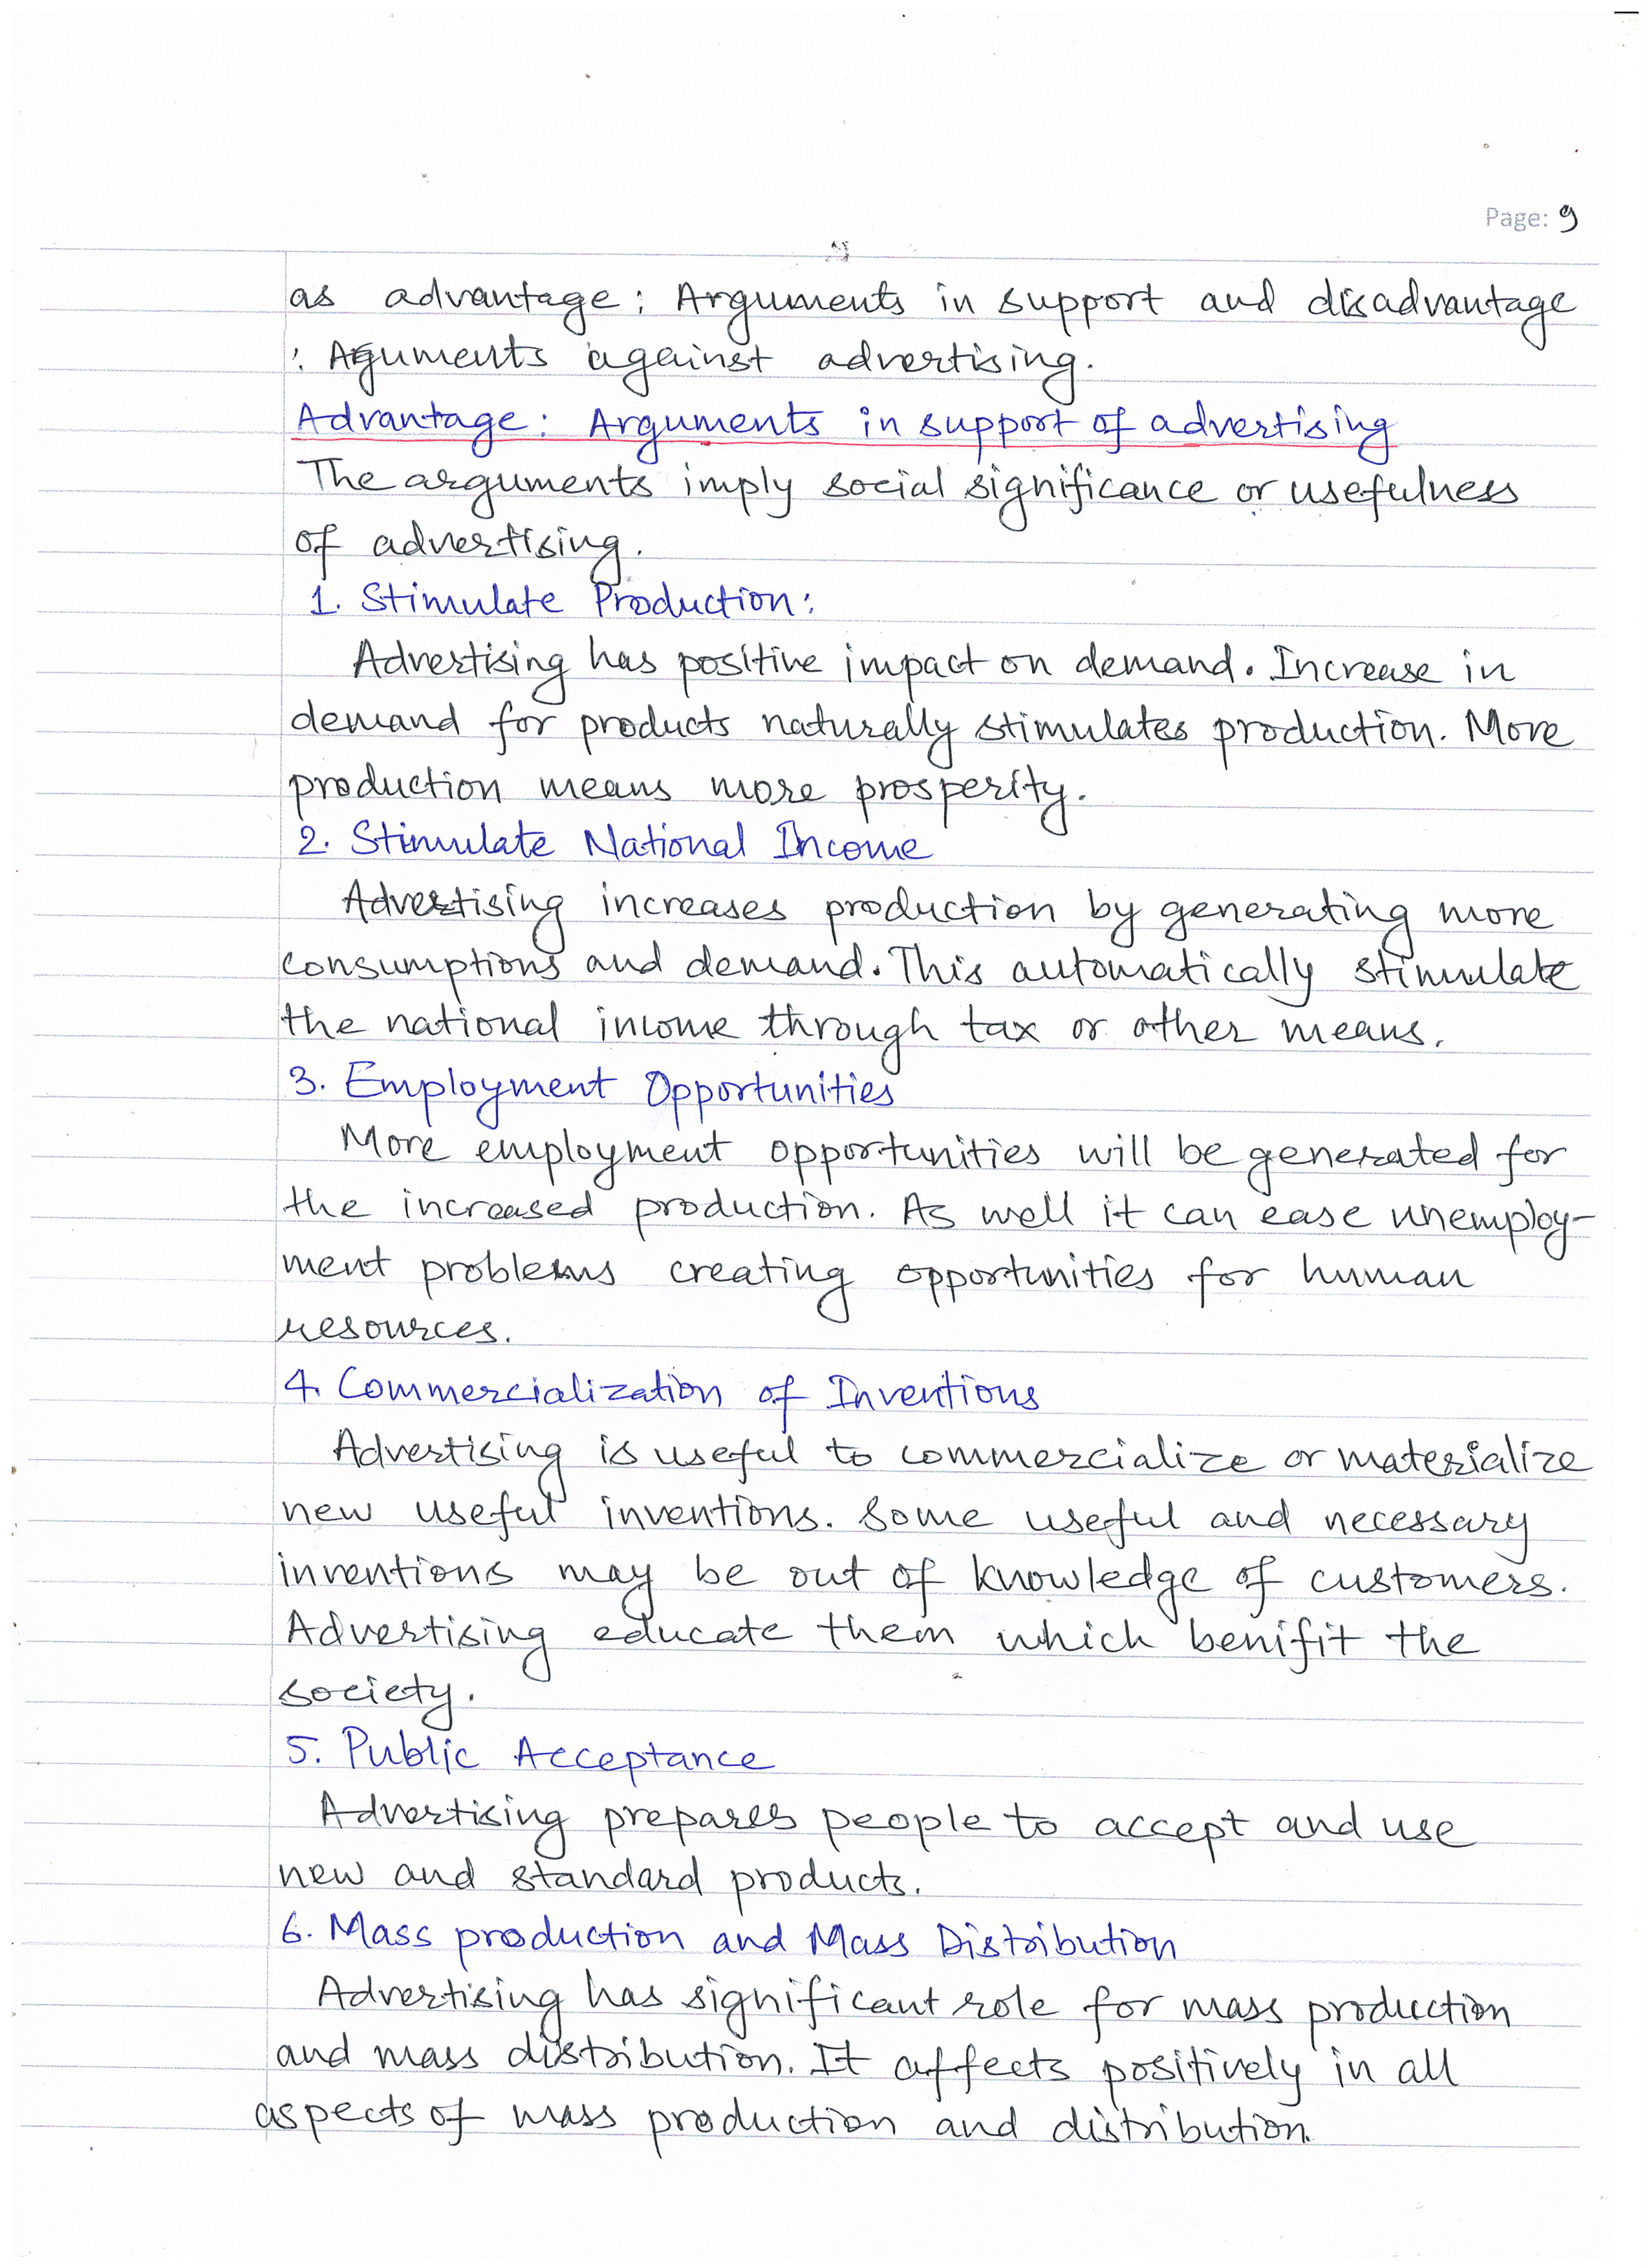 Page: 9
as advantage: Arguments in support and disadvantage
: Aguments against advertising.
Advantage: Arguments in support of advertising
The arguments imply social significance or usefulness
of advertising.
1. Stimulate Production:
Advertising has positive impact on demand. Increase in
demand for products naturally stimulates production. More
production means more prosperity.
2. Stimulate National Income
Advertising increases production by generating more
consumptions and demand. This automatically stimulate
the national income through tax or other means.
3. Employment Opportunities
More employment opportunities will be generated for
the increased production. As well it can ease unemploy-
ment problems creating opportunities for human
resources.
4. Commercialization of Inventions
Advertising is useful to commercialize or materialize
new useful inventions. Some useful and necessary
inventions may be out of knowledge of customers.
Advertising educate them which benifit the
society.
5. Public Acceptance
Advertising prepares people to accept and use
new and standard products.
6. Mass production and Mass Distribution
Advertising has significant role for mass production
and mass distribution. It affects positively in all
aspects of mass production and distribution.